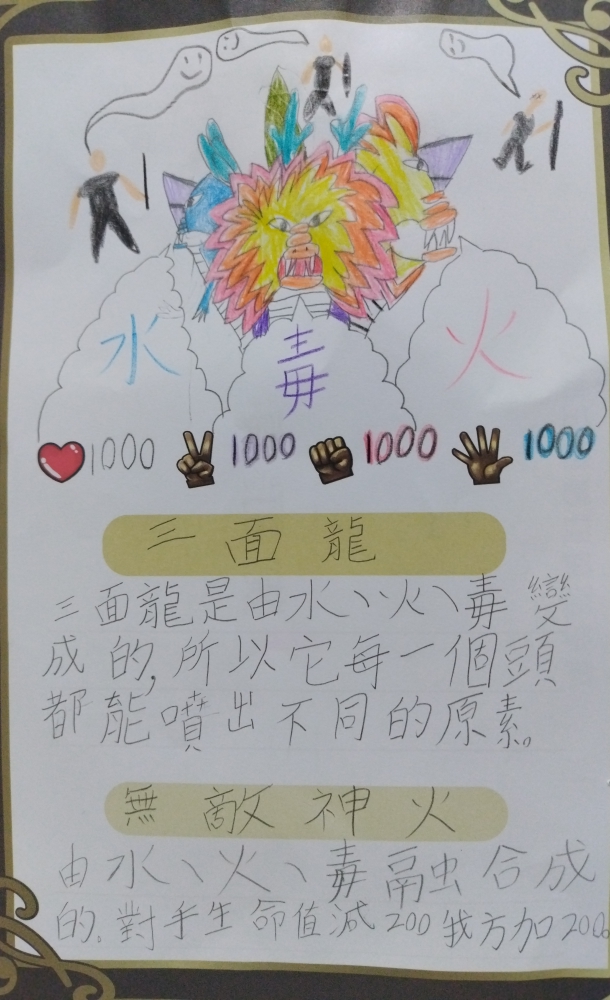 水 毒 火
1000 1000 1000 1000
三面龍
三面龍是由水、火、毒變
成的,所以它每一個頭
都能噴出不同的原素。
無敵神火
由水、火、毒融合成
的。對手生命值減200我方加200